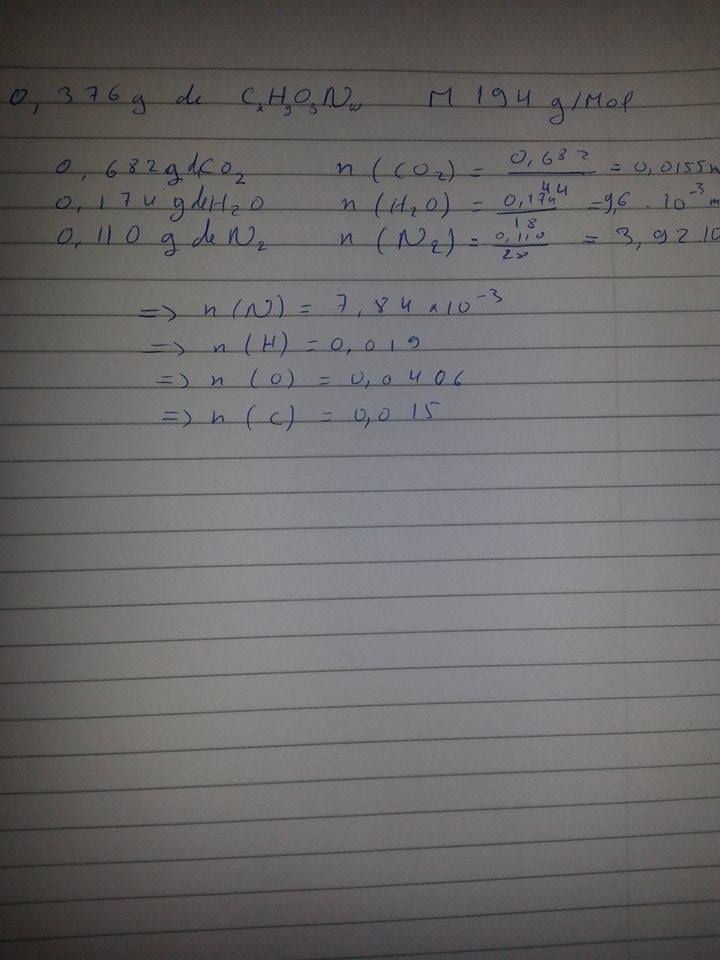 0,376g de CxHyOzNw M 194 g/Mol
0,682g de CO2 n (CO2) = 0,682/44 = 0,0155m
0,174g de H2O n (H2O) = 0,174/18 = 9,6 . 10^-3 m
0,110 g de N2 n (N2) = 0,110/28 = 3,92 10
=> n (N) = 7,84 x 10^-3
=> n (H) = 0,019
=> n (O) = 0,0406
=> n (C) = 0,015